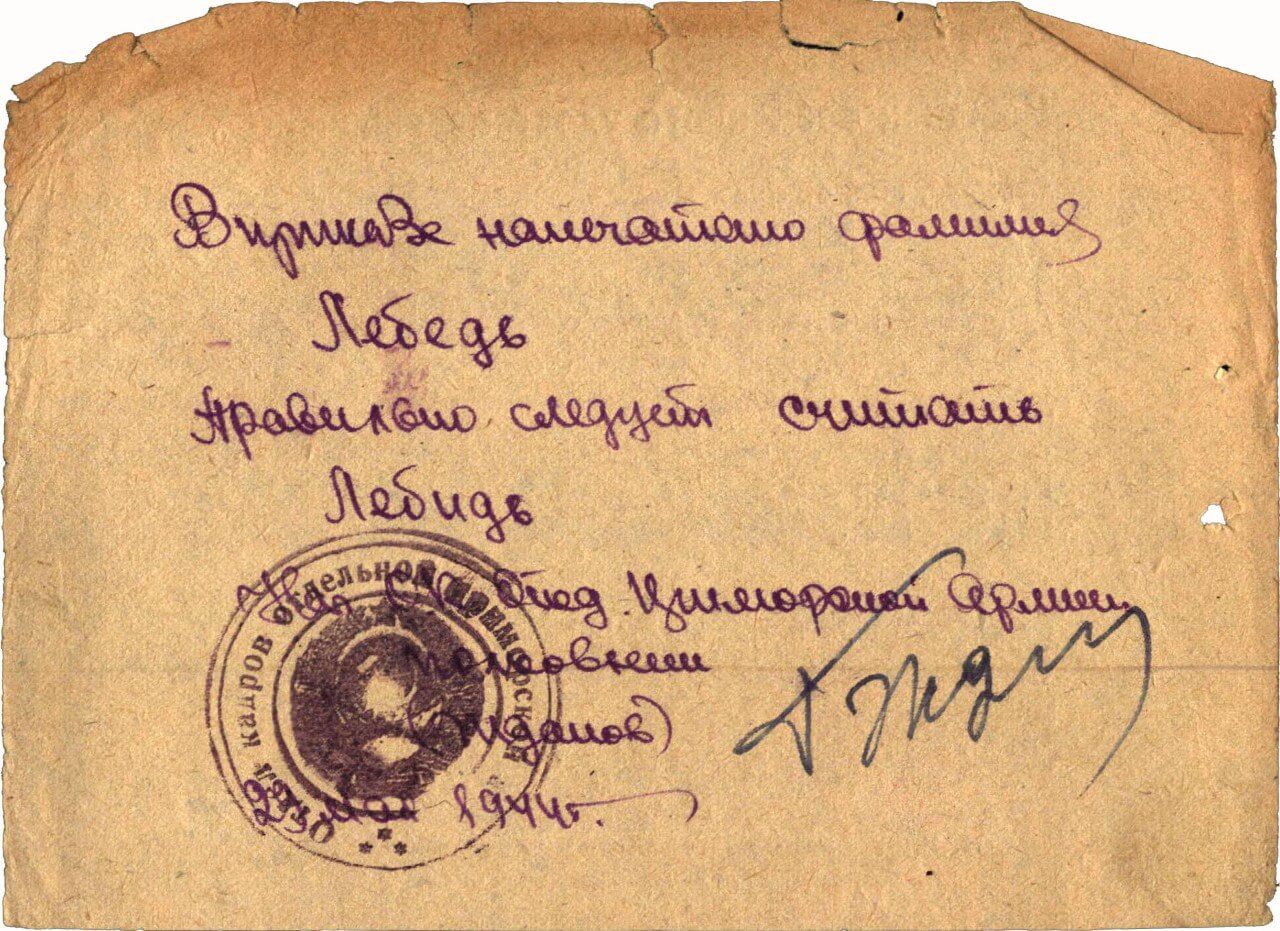 В приказе напечатано фамилия
Лебедь
Правильно следует считать
Лебидь
Нач ОК Отд. Приморской Армии
(Жданов)
23 мая 1944г.
Отдел кадров Отдельной Приморской